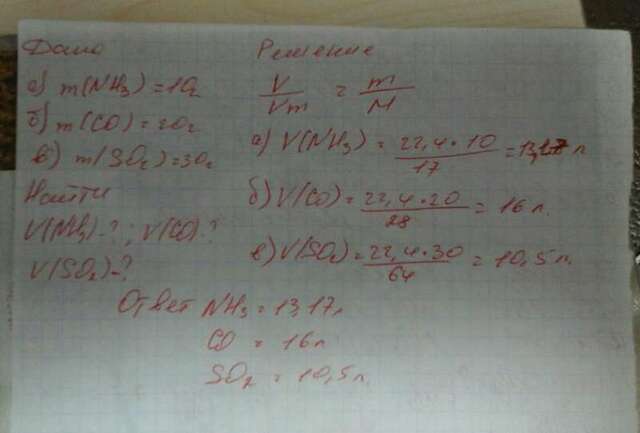 Дано
а) m(NH3) = 10г
б) m(CO) = 20г
в) m(SO2) = 30г
Найти
V(NH3)-? ; V(CO)-?
V(SO2)-?
Решение
V/Vm = m/M
а) V(NH3) = 22,4·10/17 = 13,17 л
б) V(CO) = 22,4·20/28 = 16 л.
в) V(SO2) = 22,4·30/64 = 10,5 л.
Ответ NH3 = 13,17л
CO = 16л
SO2 = 10,5л.